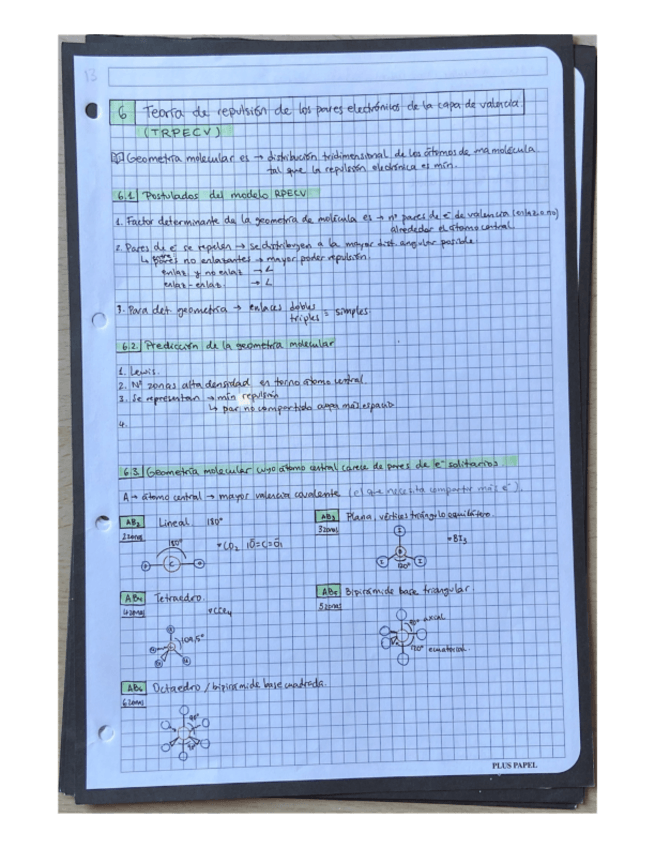 13
6 Teoría de repulsión de los pares electrónicos de la capa de valencia
(TRPECV)
Geometría molecular es → distribución tridimensional de los átomos de una molécula
tal que la repulsión electrónica es mín.
6.1 Postulados del modelo RPECV
1. Factor determinante de la geometría de molécula es → nº pares de e⁻ de valencia (enlaz. o no)
alrededor el átomo central.
2. Pares de e⁻ se repelen → se distribuyen a la mayor dist. angular posible.
↳ pares no enlazantes → mayor poder repulsión.
enlaz y no enlaz → <
enlaz - enlaz. → <
3. Para det. geometría → enlaces dobles
triples = simples
6.2. Predicción de la geometría molecular
1. Lewis.
2. Nº zonas alta densidad en torno átomo central.
3. Se representan → mín repulsión
↳ par no compartido ocupa más espacio
4.
6.3. Geometría molecular cuyo átomo central carece de pares de e⁻ solitarios.
A → átomo central → mayor valencia covalente (el que necesita compartir más e⁻).
AB₂ Lineal 180°
2 zonas
180°
C
• CO₂ |O=C=O|
AB₃ Plana, vértices triángulo equilátero.
3 zonas
• BI₃
B
I I I
120°
AB₄ Tetraedro.
4 zonas
• CCl₄
109,5°
AB₅ Bipirámide base triangular
5 zonas
90° axial
120° ecuatorial.
AB₆ Octaedro / bipirámide base cuadrada.
6 zonas
90°
90°
PLUS PAPEL